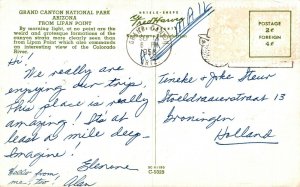 GRAND CANYON NATIONAL PARK
ARIZONA
FROM LIPAN POINT
By morning light, at no point are the
weird and grotesque formations of the
canyon strata more clearly seen than
from Lipan Point which also commands
an interesting view of the Colorado
River.
Hi!
We really are
enjoying our trip.
This place is really
amazing! It's at
least a mile deep-
Imagine!
Glenene
Hello from
me-too! Alan
PM
1958
POSTAGE
2¢
FOREIGN
4¢
Teneke & Joke Steur
Stoeldraaierstraat 13
Groningen
Holland
C-5025